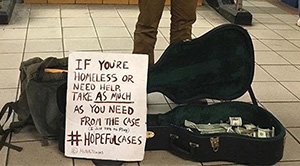 IF YOU'RE
HOMELESS OR
NEED HELP,
TAKE AS MUCH
AS YOU NEED
FROM THE CASE
(I Just Love to Play)
#HOPEFULCASES